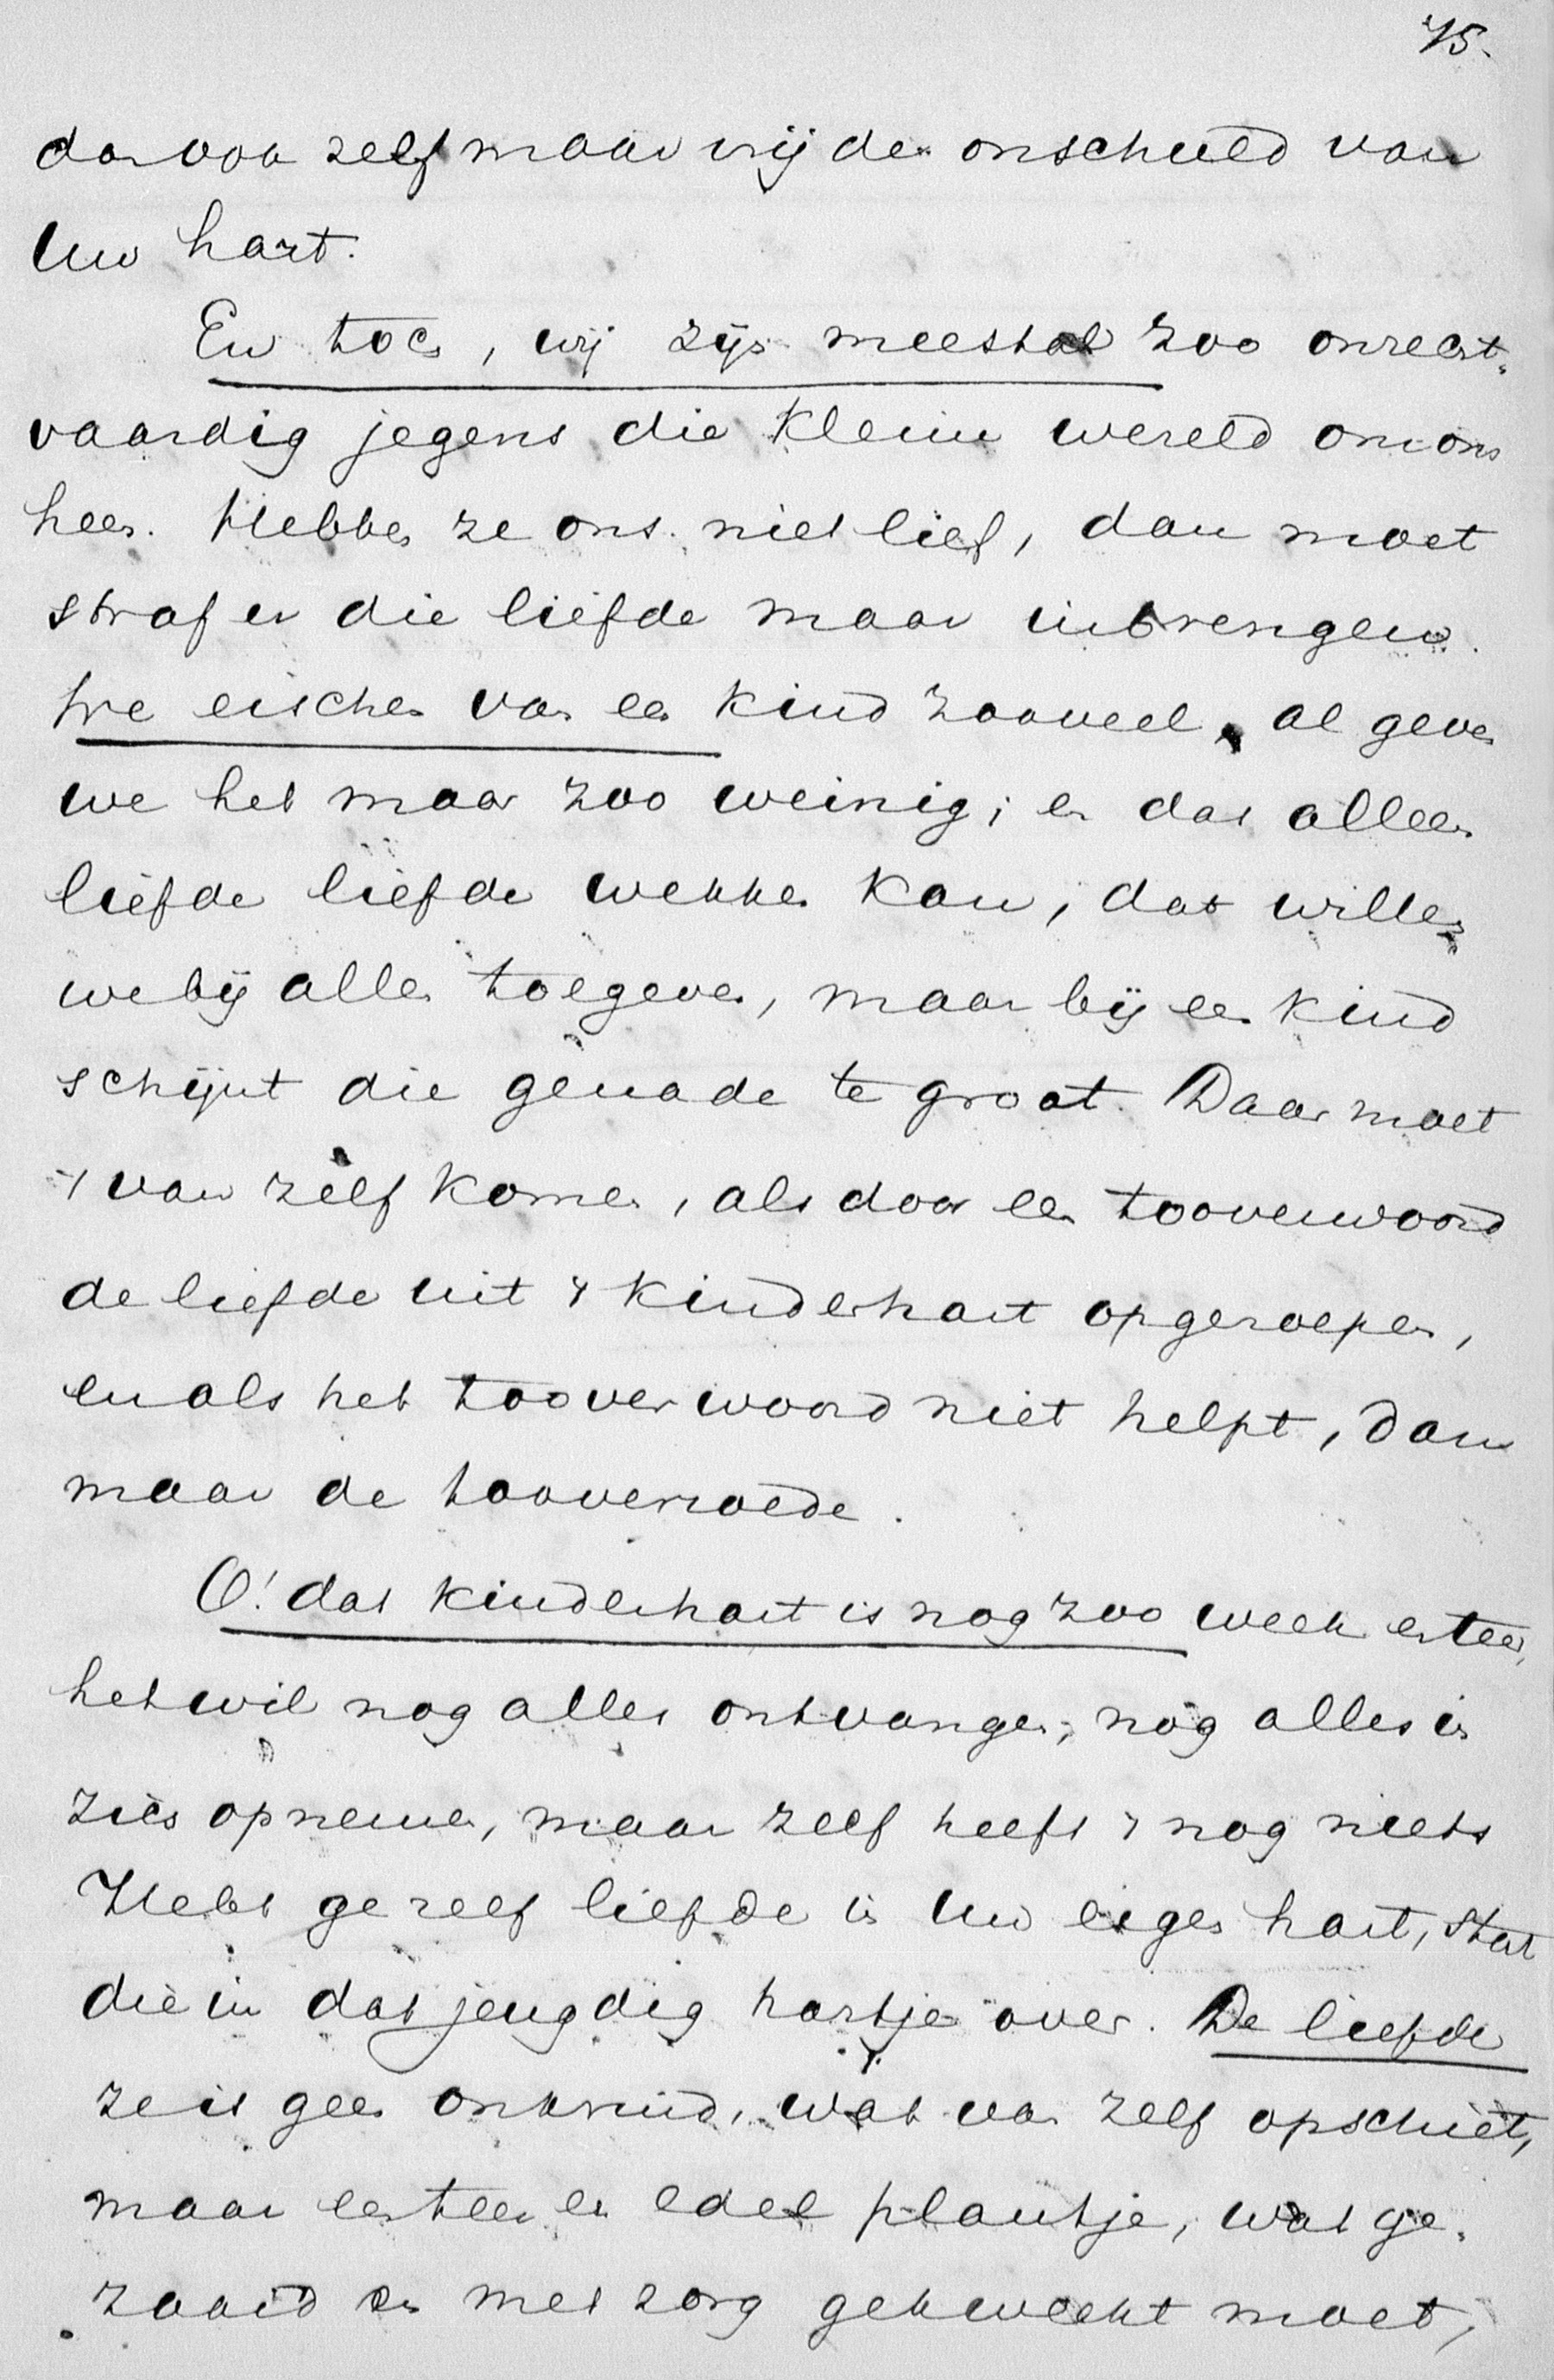 75.
daarvoor zelf maar vrij de onschuld van
Uw hart.
En toch, wij zijn meestal zoo onrecht-
vaardig jegens die kleine wereld om ons
heen. Hebben ze ons niet lief, dan moet
straf er die liefde maar inbrengen.
We eischen van een kind zooveel, al geven
we het maar zoo weinig; en dat alleen
liefde liefde wekken kan, dat willen
we bij allen toegeven, maar bij een kind
schijnt die genade te groot. Daar moet
't van zelf komen, als door een tooverwoord
de liefde uit 't kinderhart opgeroepen,
en als het tooverwoord niet helpt, dan
maar de tooverroede.
O! dat kinderhart is nog zoo week en teer,
het wil nog alles ontvangen, nog alles in
zich opnemen, maar zelf heeft 't nog niets
Hebt ge zelf liefde in Uw eigen hart, stort
die in dat jeugdig hartje over. De liefde
ze is geen onkruid, wat van zelf opschiet,
maar een teer en edel plantje, wat ge-
zaaid en met zorg gekweekt moet,